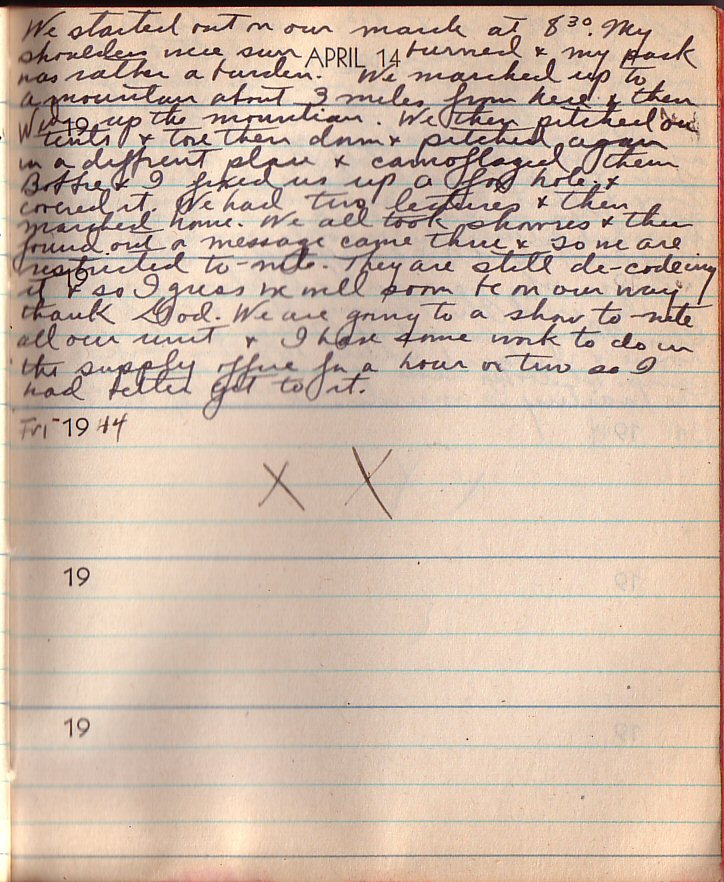 We started out on our march at 8 30. My
shoulders were sun burned & my pack
APRIL 14
was rather a burden. We marched up to
a mountain about 3 miles from here & then
19
up the mountian. We then pitched our
tents & tore them down & pitched again
in a diffrent place & camoflaged them
& I fixed us up a fox hole &
covered it. We had two lectures & then
marched home. We all took showres & then
found out a message came thru & so we are
19
restricted to-nite. They are still de-codeing
it & so I guess we will soon be on our way
thank God. We are going to a show to-nite
all our unit & I have some work to do in
the supply office for a hour or two so I
had better get to it.
Fri- 1944
X X
19
19